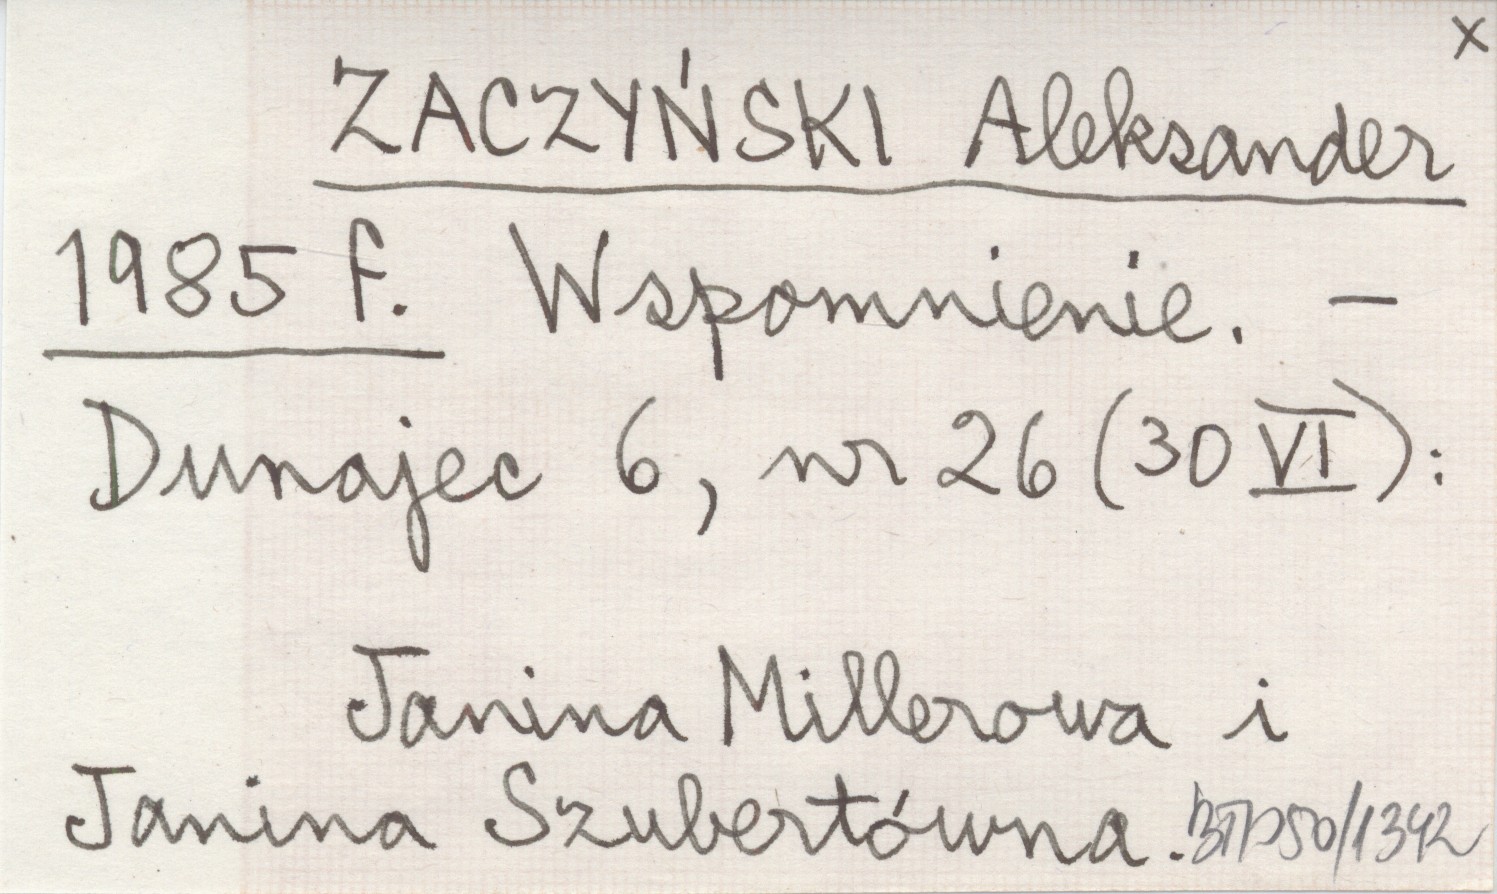 x
ZACZYŃSKI Aleksander
1985 f. Wspomnienie. –
Dunajec 6, nr 26 (30 VI):
Janina Millerowa i
Janina Szubertówna.